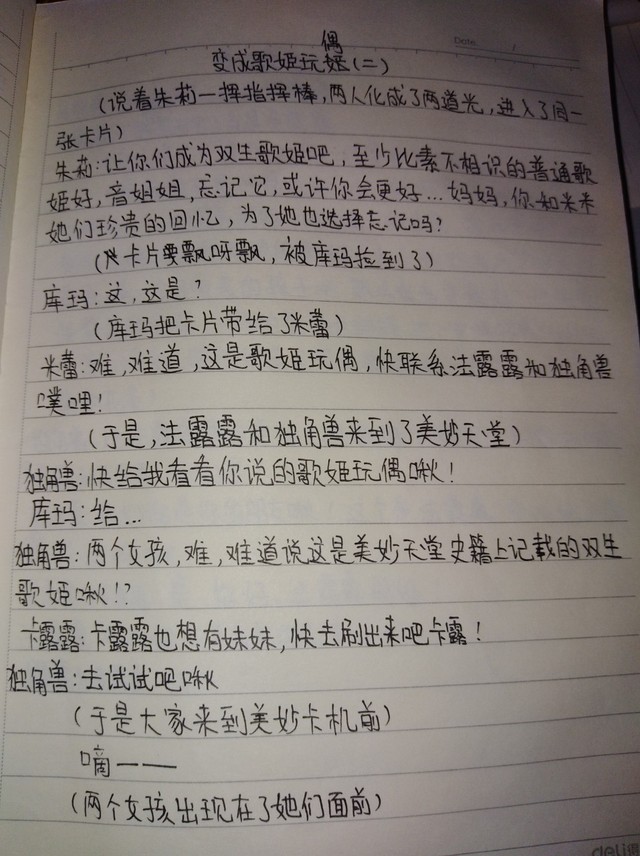 偶
变成歌姬玩姬(二)
Date
(说着朱莉一挥指挥棒,两人化成了两道光,进入了同一
张卡片)
朱莉:让你们成为双生歌姬吧,至少比素不相识的普通歌
姬好,音姐姐,忘记它,或许你会更好…妈妈,你和米米
她们珍贵的回忆,为了她也选择忘记吗?
(卡片飘呀飘,被库玛捡到了)
库玛:这,这是?
(库玛把卡片带给了米蕾)
米蕾:难,难道,这是歌姬玩偶,快联系法露露和独角兽
噗哩!
(于是,法露露和独角兽来到了美妙天堂)
独角兽:快给我看看你说的歌姬玩偶啾!
库玛:给…
独角兽:两个女孩,难,难道说这是美妙天堂史籍上记载的双生
歌姬啾!?
卡露露:卡露露也想有妹妹,快去刷出来吧卡露!
独角兽:去试试吧啾
(于是大家来到美妙卡机前)
嘀——
(两个女孩出现在了她们面前)
deli